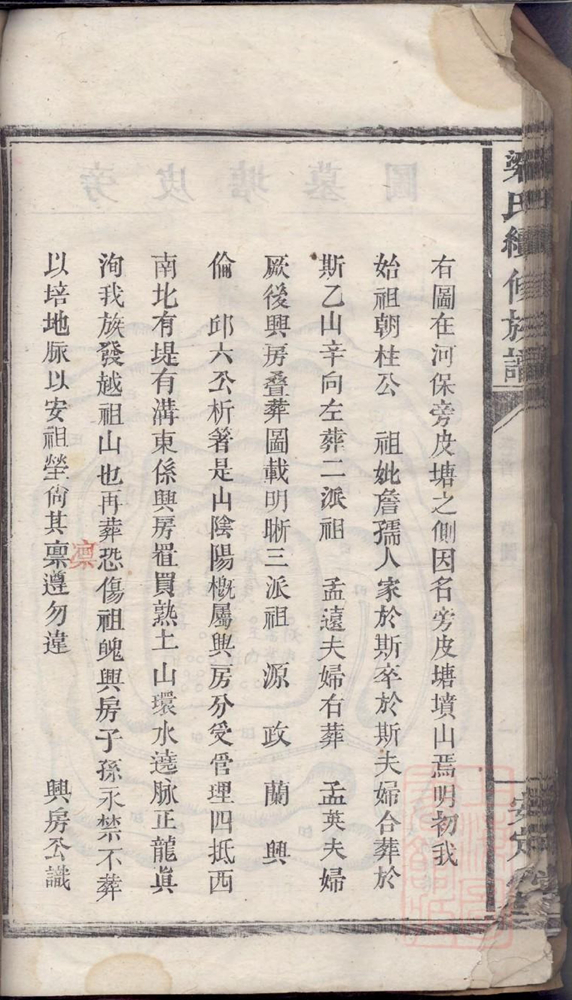 梁氏續修族譜
安定堂
右圖在河保旁皮塘之側因名旁皮塘墳山焉明初我
始祖朝桂公　祖妣詹孺人家於斯卒於斯夫婦合葬於
斯乙山辛向左葬二派祖　孟遠夫婦右葬　孟英夫婦
厥後興房叠葬圖載明晰三派祖　源　政　蘭　興
倫　邱六公析箸是山陰陽概屬興房分受管理四抵西
南北有堤有溝東係興房置買熟土山環水遶脉正龍眞
洵我族發越祖山也再葬恐傷祖魄興房子孫永禁不葬
以培地脉以安祖塋尙其禀遵勿違　興房公識
凛
旁皮塘墓圖